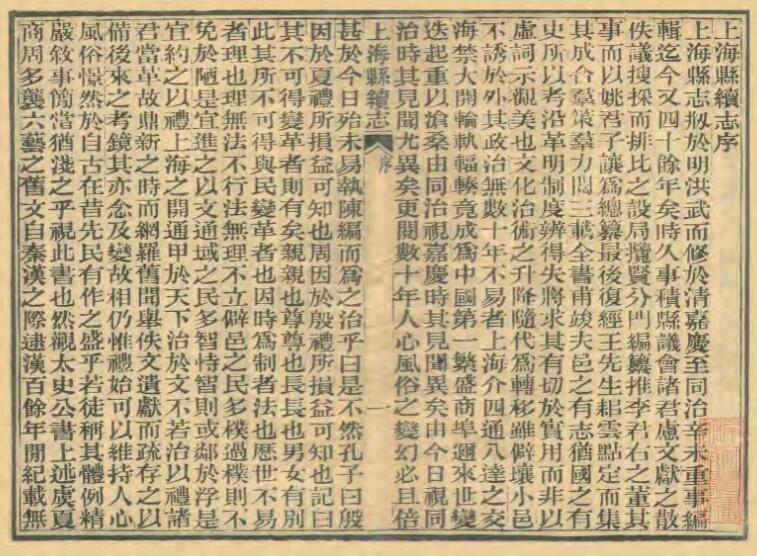 上海縣續志序
上海縣志剏於明洪武而修於清嘉慶至同治辛未重事編
輯迄今又四十餘年矣時久事積縣議會諸君慮文獻之散
佚議搜採而排比之設局攬賢分門編纂推李君右之董其
事而以姚君子讓爲總纂最後復經王先生耜雲點定而集
其成合羣策羣力閱三載全書甫竣夫邑之有志猶國之有
史所以考沿革明制度辨得失將求其有切於實用而非以
虛詞示觀美也文化治術之升降隨代爲轉移雖僻壤小邑
不誘於外其政治無數十年不易者上海介四通八達之交
海禁大開輪軌輻輳竟成爲中國第一繁盛商埠邇來世變
迭起重以滄桑由同治視嘉慶時其見聞異矣由今日視同
治時其見聞尤異矣更閱數十年人心風俗之變幻必且倍
上海縣續志 序 一
甚於今日殆未易執陳編而爲之治乎曰是不然孔子曰殷
因於夏禮所損益可知也周因於殷禮所損益可知也記曰
其不可得變革者則有矣親親也尊尊也長長也男女有別
此其所不可得與民變革者也因時爲制者法也歷世不易
者理也理無法不行法無理不立僻邑之民多樸過樸則不
免於陋是宜進之以文通域之民多智恃智則或鄰於浮是
宜約之以禮上海之開通甲於天下治於文不若治以禮諸
君當革故鼎新之時而網羅舊聞舉佚文遺獻而疏存之以
備後來之考鏡其亦念及變故相仍惟禮始可以維持人心
風俗憬然於自古在昔先民有作之盛乎若徒稱其體例精
嚴敘事簡當猶淺之乎視此書也然觀太史公書上述虞夏
商周多襲六藝之舊文自秦漢之際逮漢百餘年間紀載無